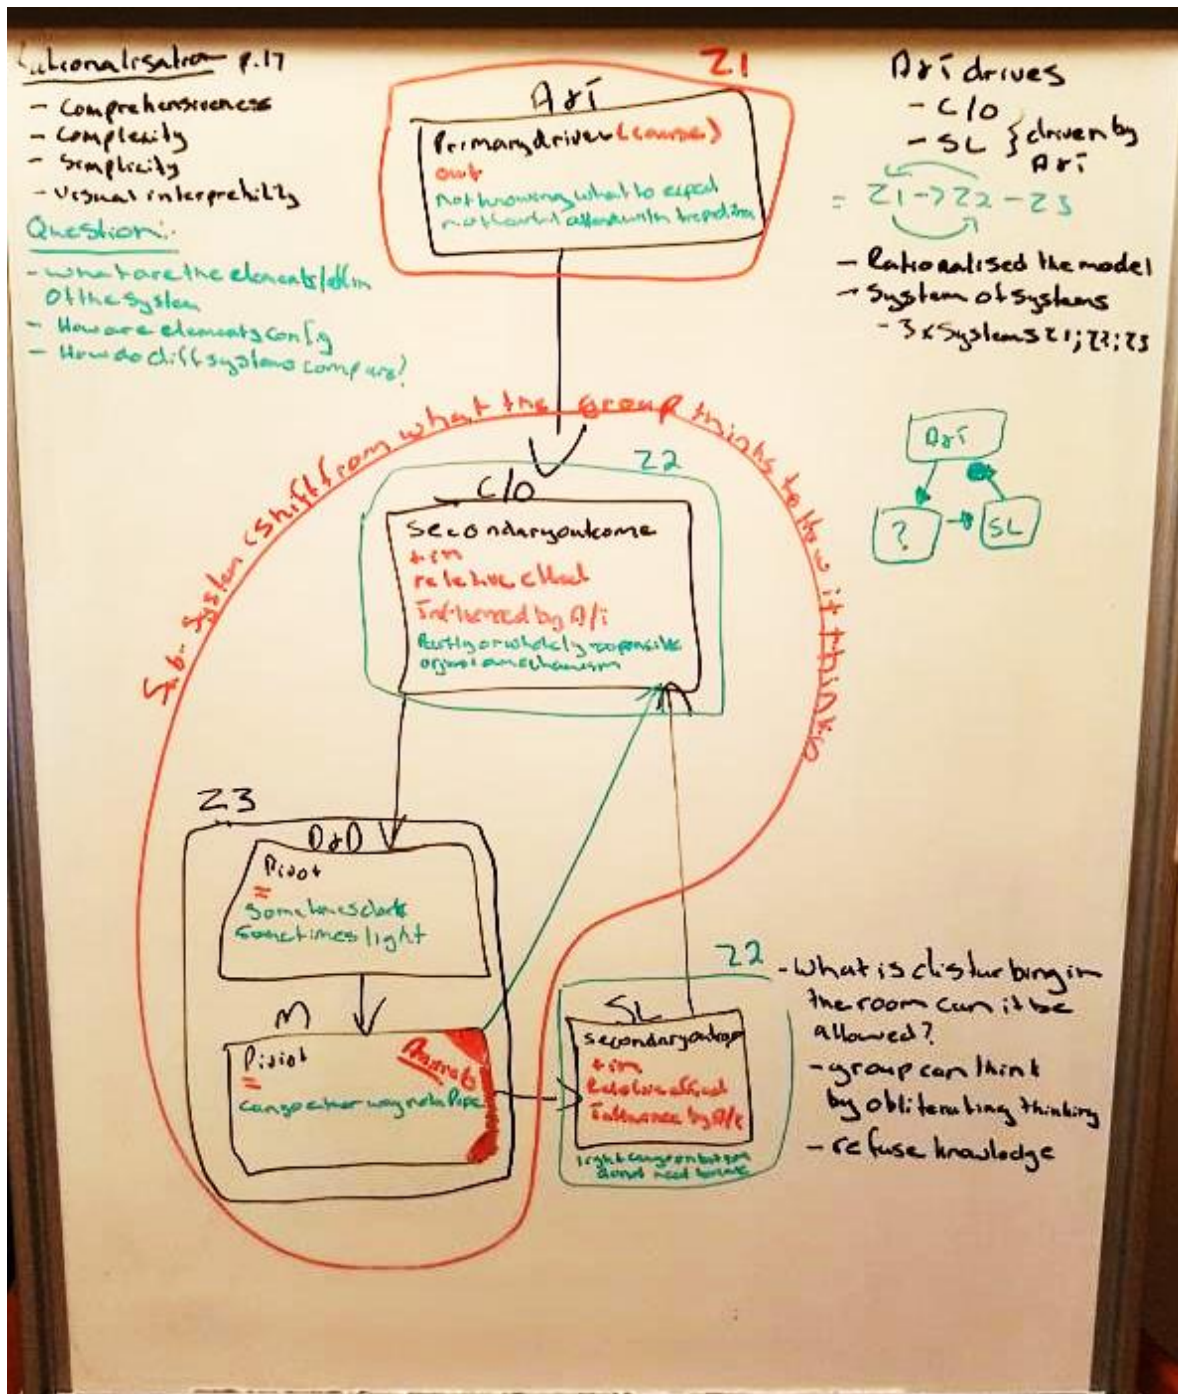 p.17
- Comprehensiveness
- Complexity
- Simplicity
- Visual interpretability
Question:
- What are the elements/
of the system
- How are elements config
- How do diff systems compare?
Z1
A&I
Primary driver (cause)
out
not knowing what to expect
A&I drives
- C/O
- SL } driven by
A&I
= Z1 -> Z2 - Z3
- Rationalised the model
- System of systems
- 3 x Systems Z1; Z2; Z3
A&I
?
SL
Sub-System (shift from what the group thinks to how it thinks
Z2
C/O
Secondary outcome
+ in
relative effect
Influenced by A/i
Partly or wholely responsible
Z3
D&D
Pivot
=
Sometimes dark
Sometimes light
M
Pivot
=
can go either way not a Pipe
Z2
SL
Secondary outcome
+ in
Relative effect
Influence by A/i
- What is disturbing in
the room can it be
allowed?
- group can think
by obliterating thinking
- refuse knowledge